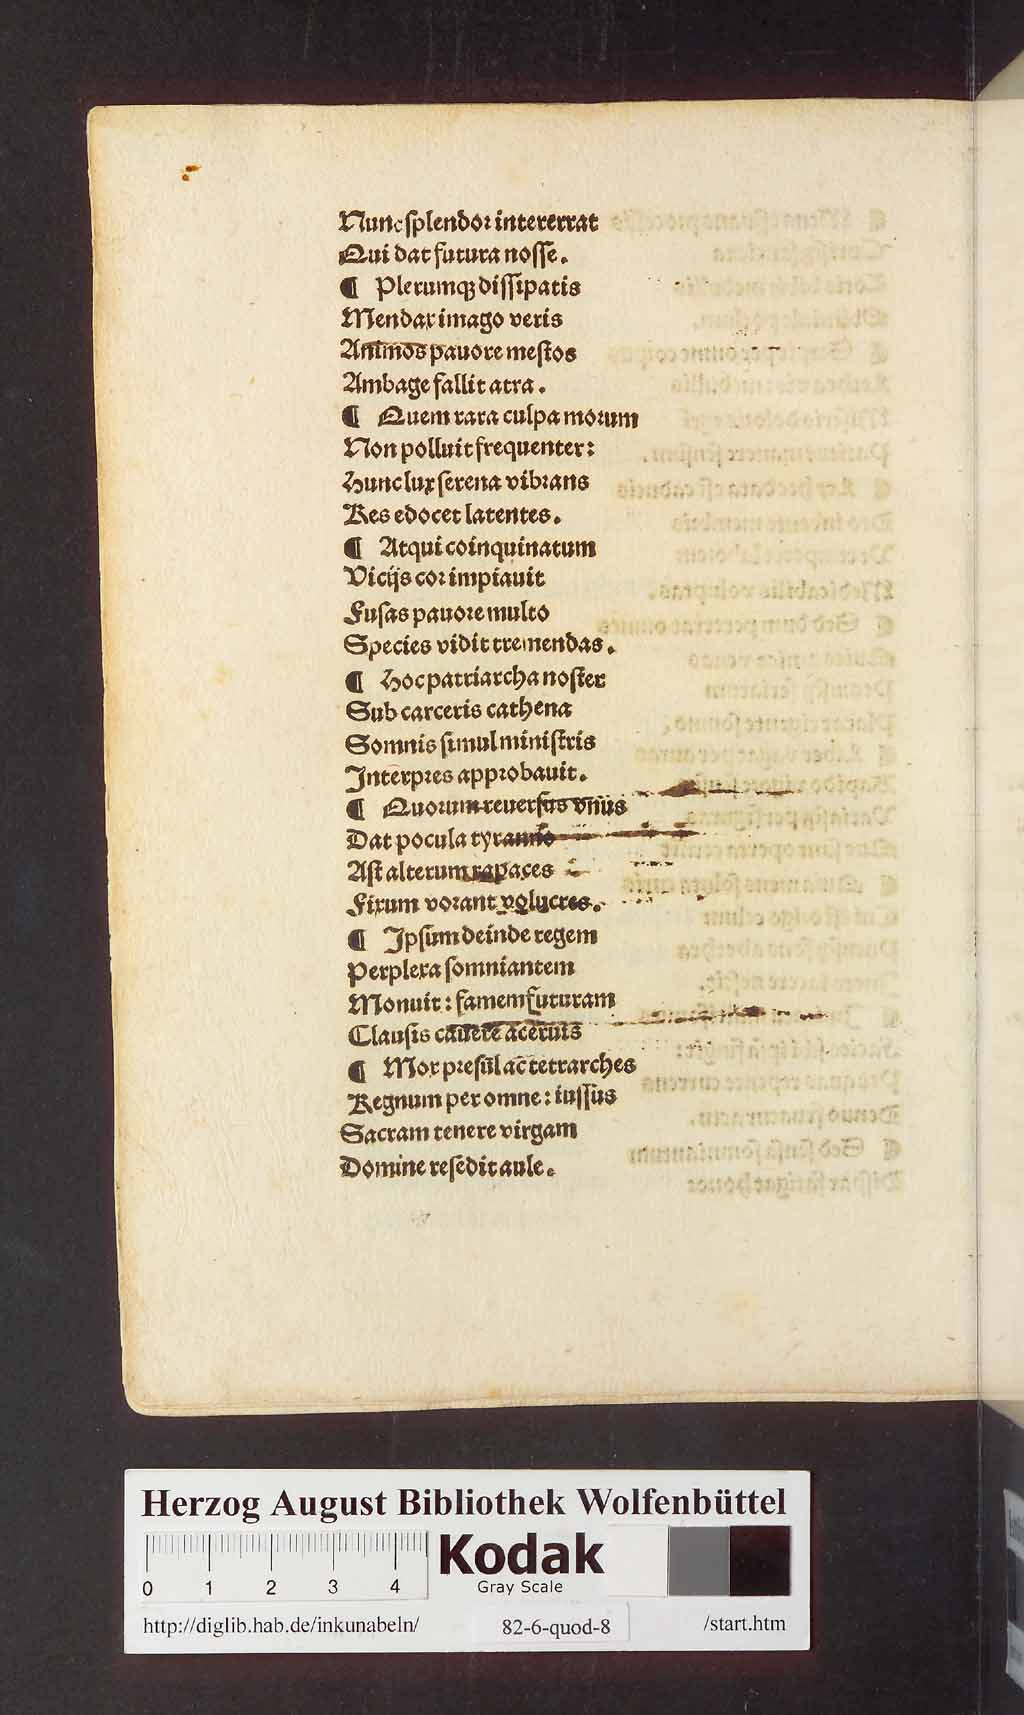 Nunc splendor intererrat
Qui dat futura nosse.
¶ Plerumqꝫ dissipatis
Mendax imago veris
Animos pauore mestos
Ambage fallit atra.
¶ Quem rara culpa morum
Non polluit frequenter:
Hunc lux serena vibrans
Res edocet latentes.
¶ Atqui coinquinatum
Vicijs cor impiauit
Fusas pauore multo
Species vidit tremendas.
¶ Hoc patriarcha noster
Sub carceris cathena
Somnis simul ministris
Interpres approbauit.
¶ Quorum reuersus vnus
Dat pocula tyranno
Ast alterum rapaces
Fixum vorant volucres.
¶ Ipsum deinde regem
Perplexa somniantem
Monuit: famem futuram
Clausis cauere aceruis
¶ Mox presul ac tetrarches
Regnum per omne: iussus
Sacram tenere virgam
Domine resedit aule.
Herzog August Bibliothek Wolfenbüttel
0 1 2 3 4
Kodak
Gray Scale
http://diglib.hab.de/inkunabeln/ 82-6-quod-8 /start.htm